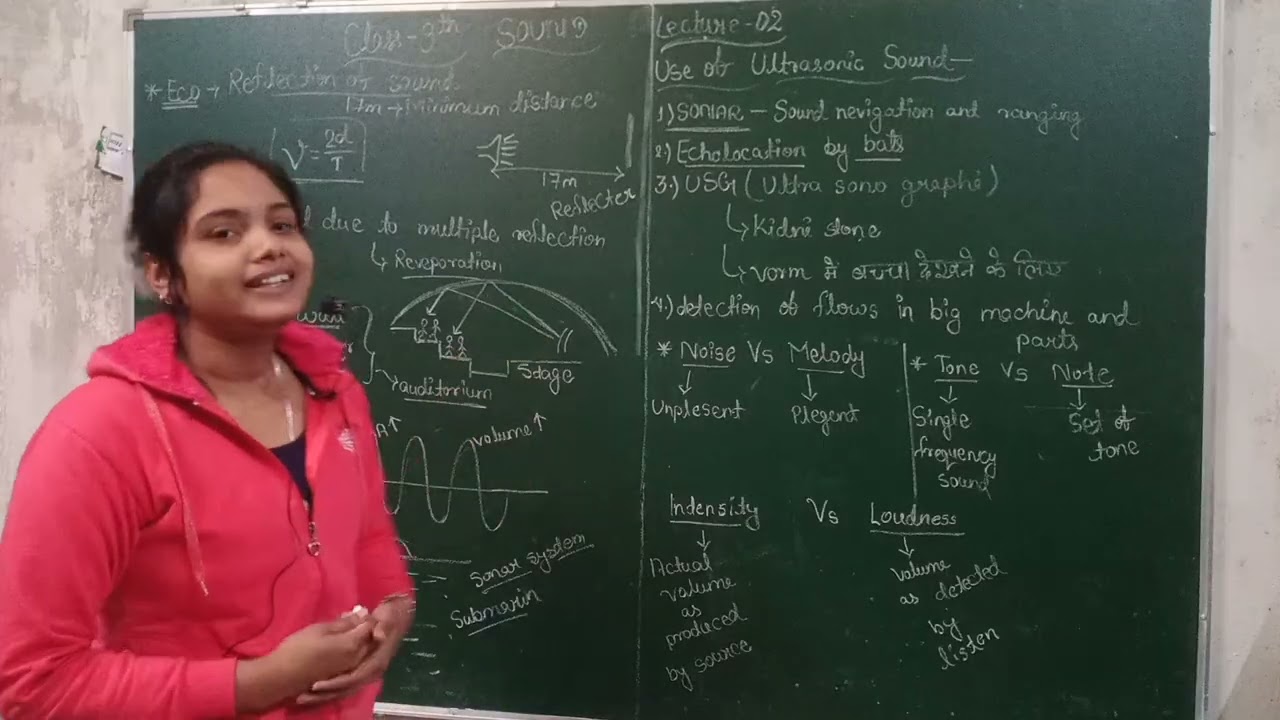 Class-9th SOUND
* Eco → Reflection of sound
17m → Minimum distance
V = 2d/T
17m
Reflecter
due to multiple reflection
↳ Reveporation
→ auditorium
Stage
A↑
volume ↑
Sonar system
Submarin
Lecture-02
Use of Ultrasonic Sound-
1) SONAR - Sound nevigation and ranging
2) Echolocation by bats
3.) USG (Ultra sono graphi)
↳ Kidni stone
↳ vorm में बच्चा देखने के लिए
4.) detection of flows in big machine and
parts
* Noise Vs Melody
Unplesent
Plegent
* Tone Vs Note
Single
frequency
sound
Set of
tone
Indensity Vs Loudness
Actual
volume
as
produced
by source
volume
as detected
by
listen